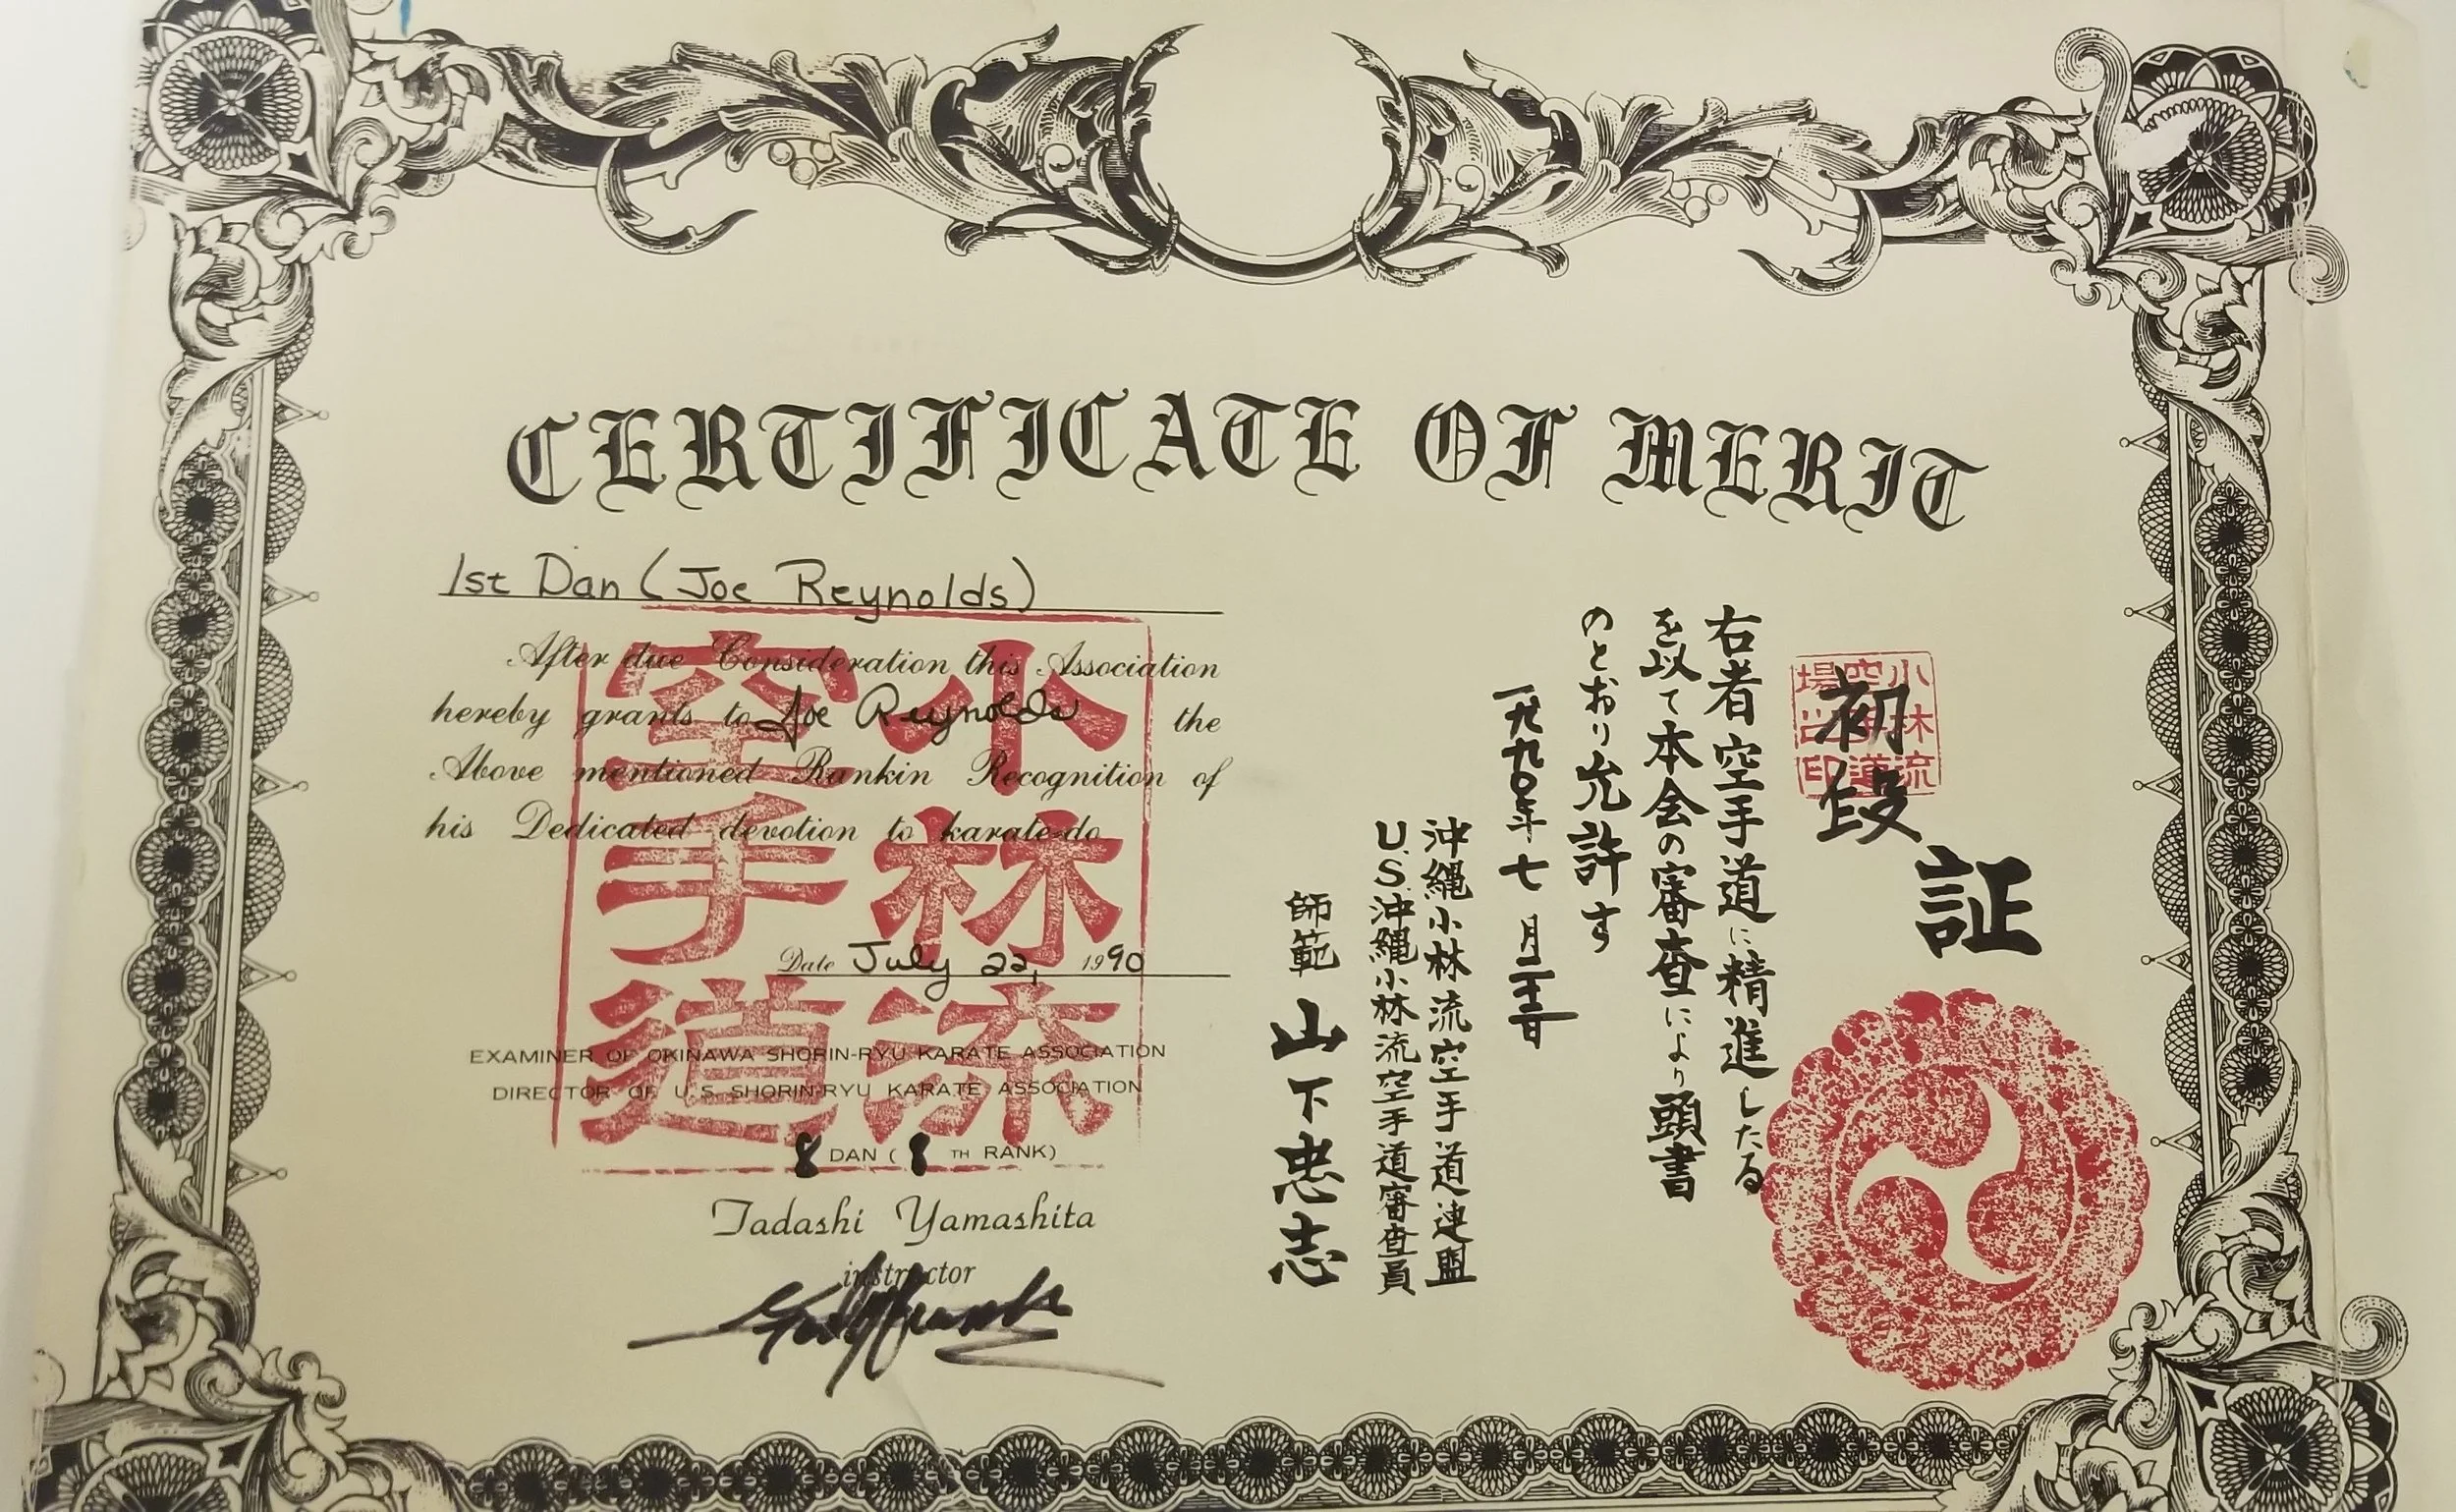 CERTIFICATE OF MERIT
1st Dan (Joe Reynolds)
After due Consideration this Association
hereby grants to Joe Reynolds the
Above mentioned Rankin Recognition of
his Dedicated devotion to karate-do
Date July 22, 1990
EXAMINER OF OKINAWA SHORIN-RYU KARATE ASSOCIATION
DIRECTOR OF U.S. SHORIN-RYU KARATE ASSOCIATION
8 DAN ( 8 TH RANK)
Tadashi Yamashita
instructor
小林流
空手道
証
初段
小林流
空手道
場之印
右者空手道に精進したる
を以て本会の審査により頭書
のとおり允許す
一九九〇年七月二十二日
沖縄小林流空手道連盟
U.S.沖縄小林流空手道審査員
師範 山下忠志